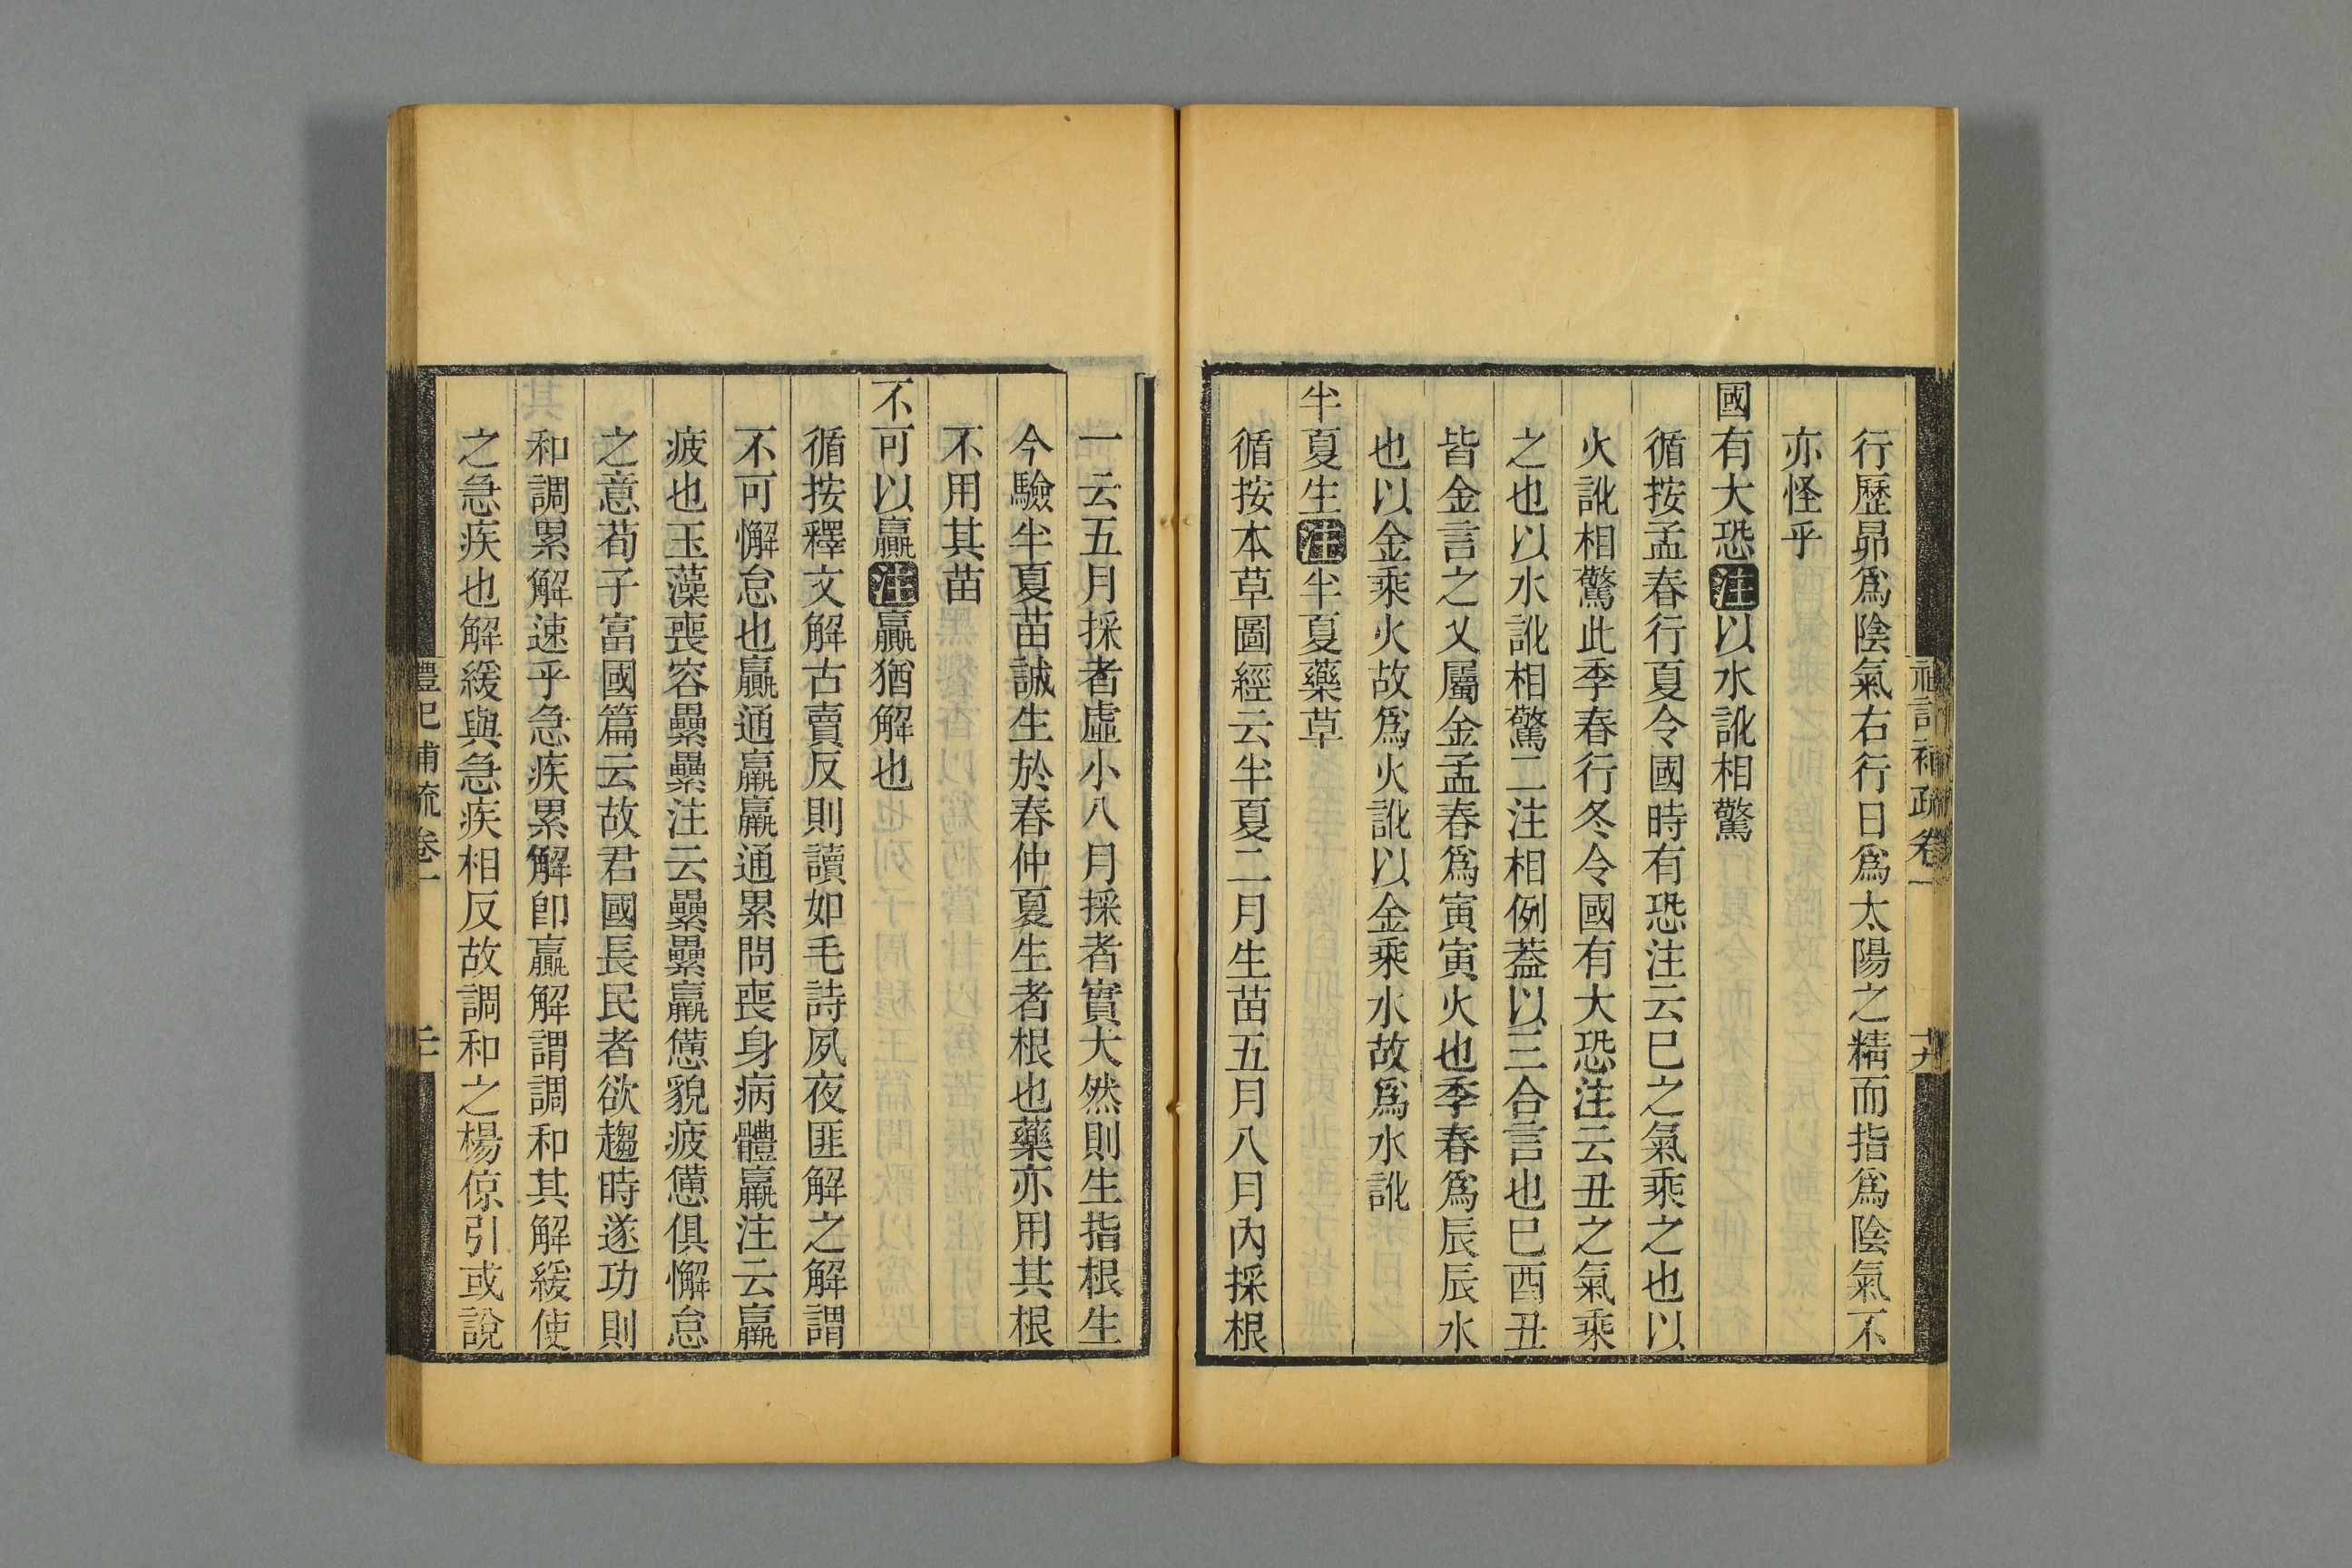 禮記補疏卷一
十九
行歷昴爲陰氣右行日爲太陽之精而指爲陰氣不
亦怪乎
國有大恐注以水訛相驚
循按孟春行夏令國時有恐注云巳之氣乘之也以
火訛相驚此季春行冬令國有大恐注云丑之氣乘
之也以水訛相驚二注相例蓋以三合言也巳酉丑
皆金言之乂屬金孟春爲寅寅火也季春爲辰辰水
也以金乘火故爲火訛以金乘水故爲水訛
半夏生注半夏藥草
循按本草圖經云半夏二月生苗五月八月內採根
一云五月採者虛小八月採者實大然則生指根生
今驗半夏苗誠生於春仲夏生者根也藥亦用其根
不用其苗
不可以贏注贏猶解也
循按釋文解古賣反則讀如毛詩夙夜匪解之解謂
不可懈怠也贏通羸羸通累問喪身病體羸注云羸
疲也玉藻喪容纍纍注云纍纍羸憊貌疲憊俱懈怠
之意荀子富國篇云故君國長民者欲趨時遂功則
和調累解速乎急疾累解卽贏解謂調和其解緩使
之急疾也解緩與急疾相反故調和之楊倞引或說
禮記補疏卷一
二十